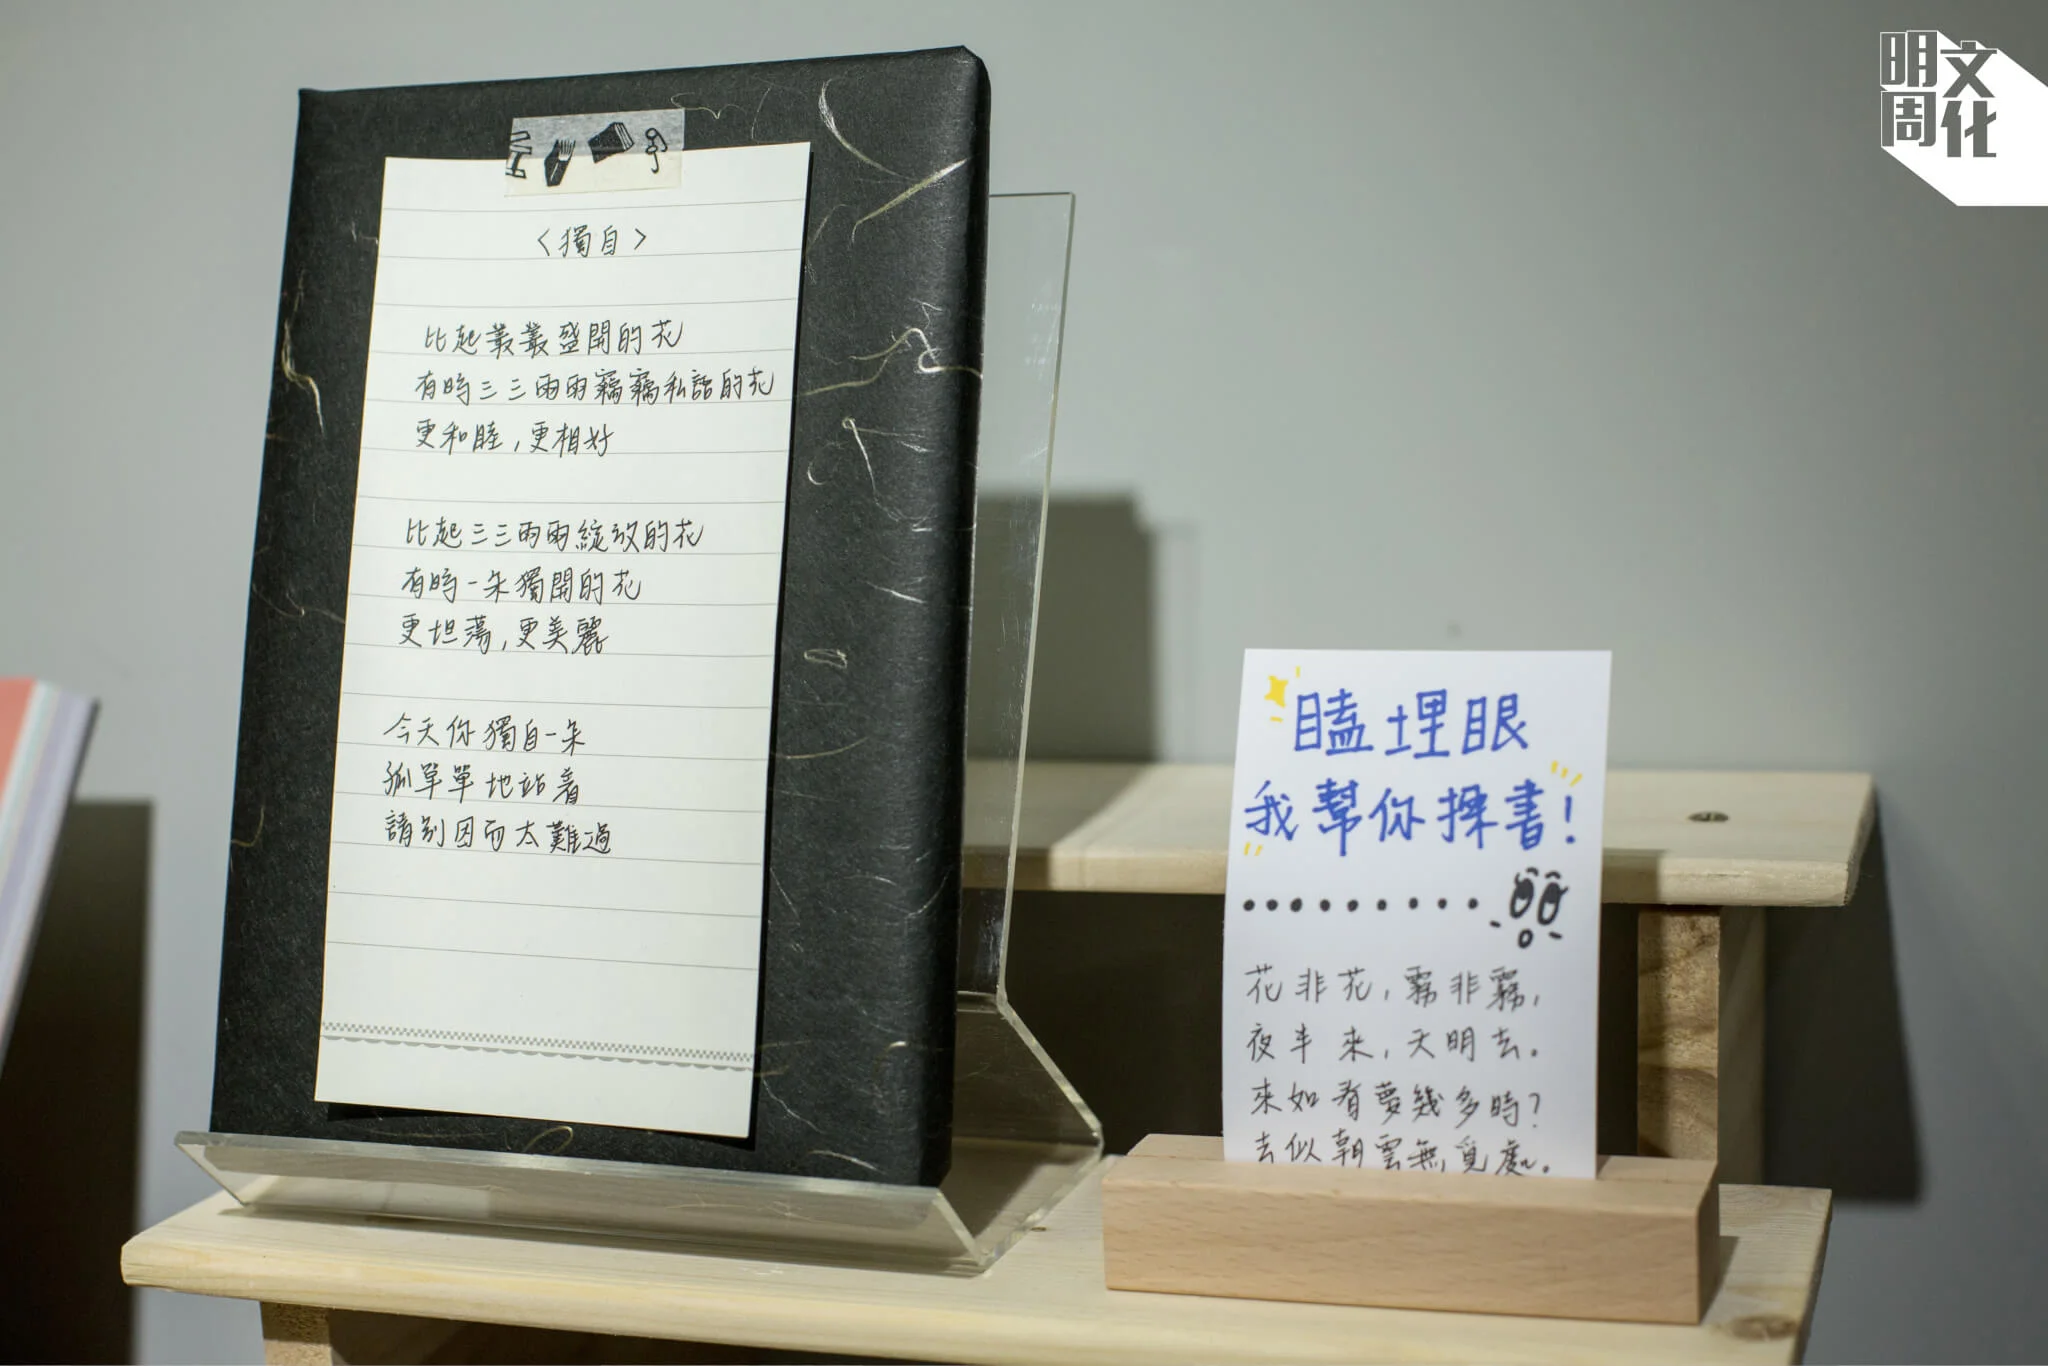 〈獨自〉
比起叢叢盛開的花
有時三三両両竊竊私語的花
更和睦，更相好
比起三三両両綻放的花
有時一朵獨開的花
更坦蕩，更美麗
今天你獨自一朵
孤單單地站着
請別因而太難過
瞌埋眼
我幫你揀書！
花非花，霧非霧，
夜半來，天明去。
來如春夢幾多時？
去似朝雲無覓處。
明周
文化